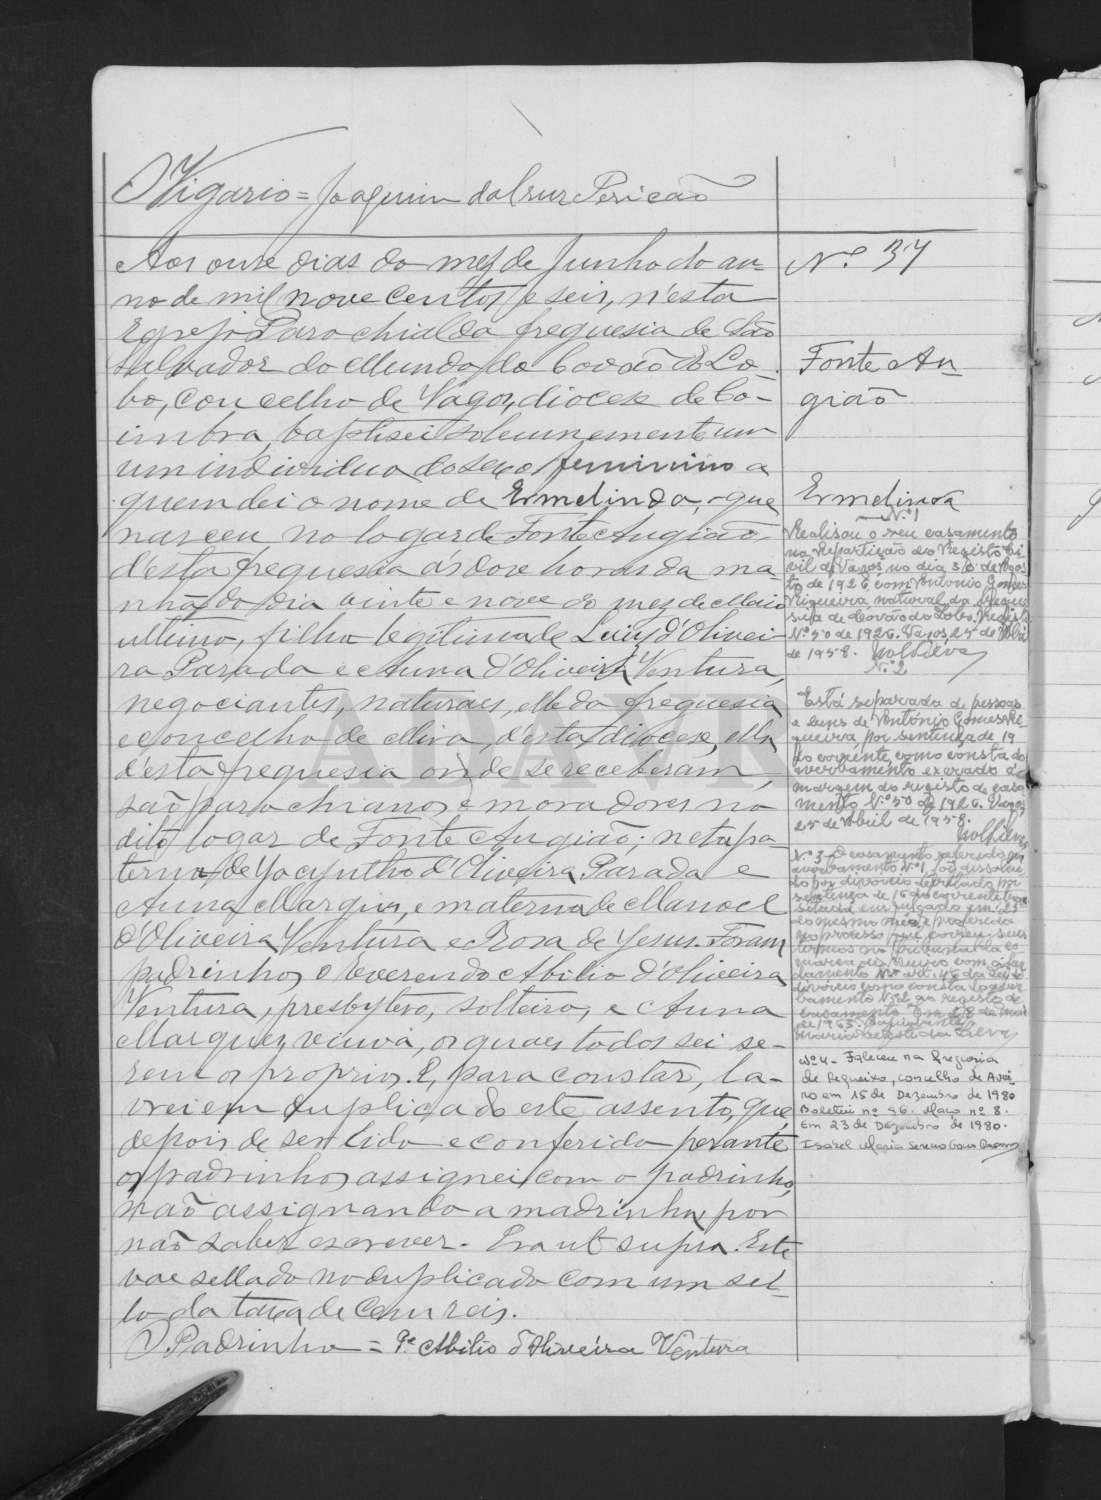 O Vigario = Joaquim da Cruz Pericão
Aos onze dias do mez de Junho do an-
no de mil nove centos e seis, n'esta
Egreja Parochial da freguesia de São
Salvador do Mundo do Covão do Lo-
bo, concelho de Vagos, diocese de Co-
imbra, baptisei solemnemente um
um individuo do sexo feminino a
quem dei o nome de Ermelinda, que
nasceu no logar de Fonte Angião
d'esta freguesia ás doze horas da ma-
nhã do dia vinte e nove do mez de Maio
ultimo, filha legitima de Luiz d'Olivei-
ra Parada e Anna d'Oliveira Ventura,
negociantes, naturaes, elle da freguesia
e concelho de Mira, d'esta diocese, ella
d'esta freguesia onde se receberam,
são parochianos e moradores no
dito logar de Fonte Angião; neta pa-
terna de Jacyntho d'Oliveira Parada e
Anna Marques, e materna de Manoel
d'Oliveira Ventura e Rosa de Jesus. Foram
padrinhos o Reverendo Abilio d'Oliveira
Ventura, presbytero, solteiro, e Anna
Marques, viuva, os quaes todos sei se-
rem os proprios. E, para constar, la-
vrei em duplicado este assento, que,
depois de ser lido e conferido perante
os padrinhos, assignei com o padrinho,
não assignando a madrinha por
não saber escrever. Era ut supra. Este
vae sellado no duplicado com um sel-
lo da taxa de cem reis.
O Padrinho = P.e Abilio d'Oliveira Ventura
Nº 37
Fonte An-
gião
Ermelinda
Nº 1
Realisou o seu casamento
na Repartição do Registo Ci-
vil de Vagos no dia 30 de Agos-
to de 1926 com Antonio Gomes
Nogueira natural da fregue-
sia de Covão do Lobo. Registo
Nº 50 de 1926. Vagos, 25 de Abril
de 1958.
Nº 2
Está separada de pessoas
e bens de António Gomes
por sentença de 19
do corrente, como consta do
averbamento exarado á
margem do registo de casa-
mento Nº 50 de 1926. Vagos,
25 de Abril de 1958.
Nº 3 - O casamento referido no
averbamento Nº 1, foi dissolvi-
do por divorcio decretado por
sentença de
do mesmo mês, proferida
no processo que correu seus
termos no
marca de
divórcio como consta do aver-
bamento Nº 2 ao registo de
casamento.
Nº 4 - Faleceu na freguesia
de Requeixo, concelho de Avei-
ro em 15 de Dezembro de 1980
Boletim nº 56. Maço nº 8.
Em 23 de Dezembro de 1980.
Isabel Maria
ADAVR